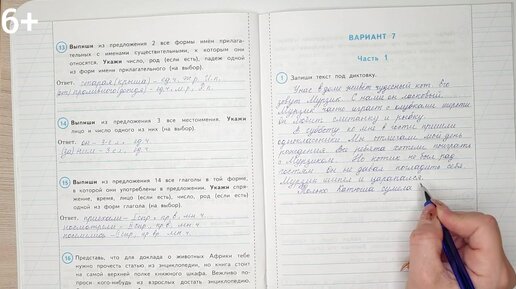 6+
13 Выпиши из предложения 2 все формы имён прилага-
тельных с именами существительными, к которым они
относятся. Укажи число, род (если есть), падеж одной
из форм имени прилагательного (на выбор).
Ответ. старая (крыша) - ед.ч., ж.р., И.п.
14 Выпиши из предложения 3 все местоимения. Укажи
лицо и число одного из них (на выбор).
Ответ. он - 3 л., ед.ч.
(за) ним - 3 л., ед.ч.
15 Выпиши из предложения 14 все глаголы в той форме,
в которой они употреблены в предложении. Укажи спря-
жение, время, лицо (если есть), число, род (если есть)
одной из форм глагола (на выбор).
Ответ. приехали - I спр., пр.в., мн.ч.
посмотрели - II спр., пр.в., мн.ч.
посмеялись - I спр., пр.вр. мн.ч.
16 Представь, что для доклада о животных Африки тебе
нужно прочесть статью из энциклопедии, но книга стоит
на самой верхней полке книжного шкафа. Вежливо по-
проси кого-нибудь из взрослых достать энциклопедию.
ВАРИАНТ 7
Часть 1
1 Запиши текст под диктовку.
У нас в доме живёт чудесный кот. Его
зовут Мурзик. С нами он ласковый.
Мурзик часто играет с клубками шерсти.
Он любит сметану и рыбку.
В субботу ко мне в гости пришли
одноклассники. Мы отмечали мой день
рождения. Все ребята хотели поиграть
с Мурзиком. Но котик не был рад
гостям. Он не давал погладить себя.
Мурзик шипел и царапался.
Только Катюша сумела